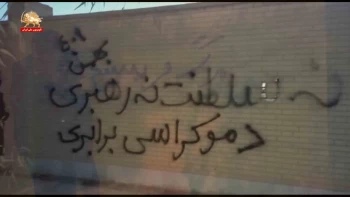 بهمن ۴۰۱
نه سلطنت نه رهبری
دموکراسی برابری